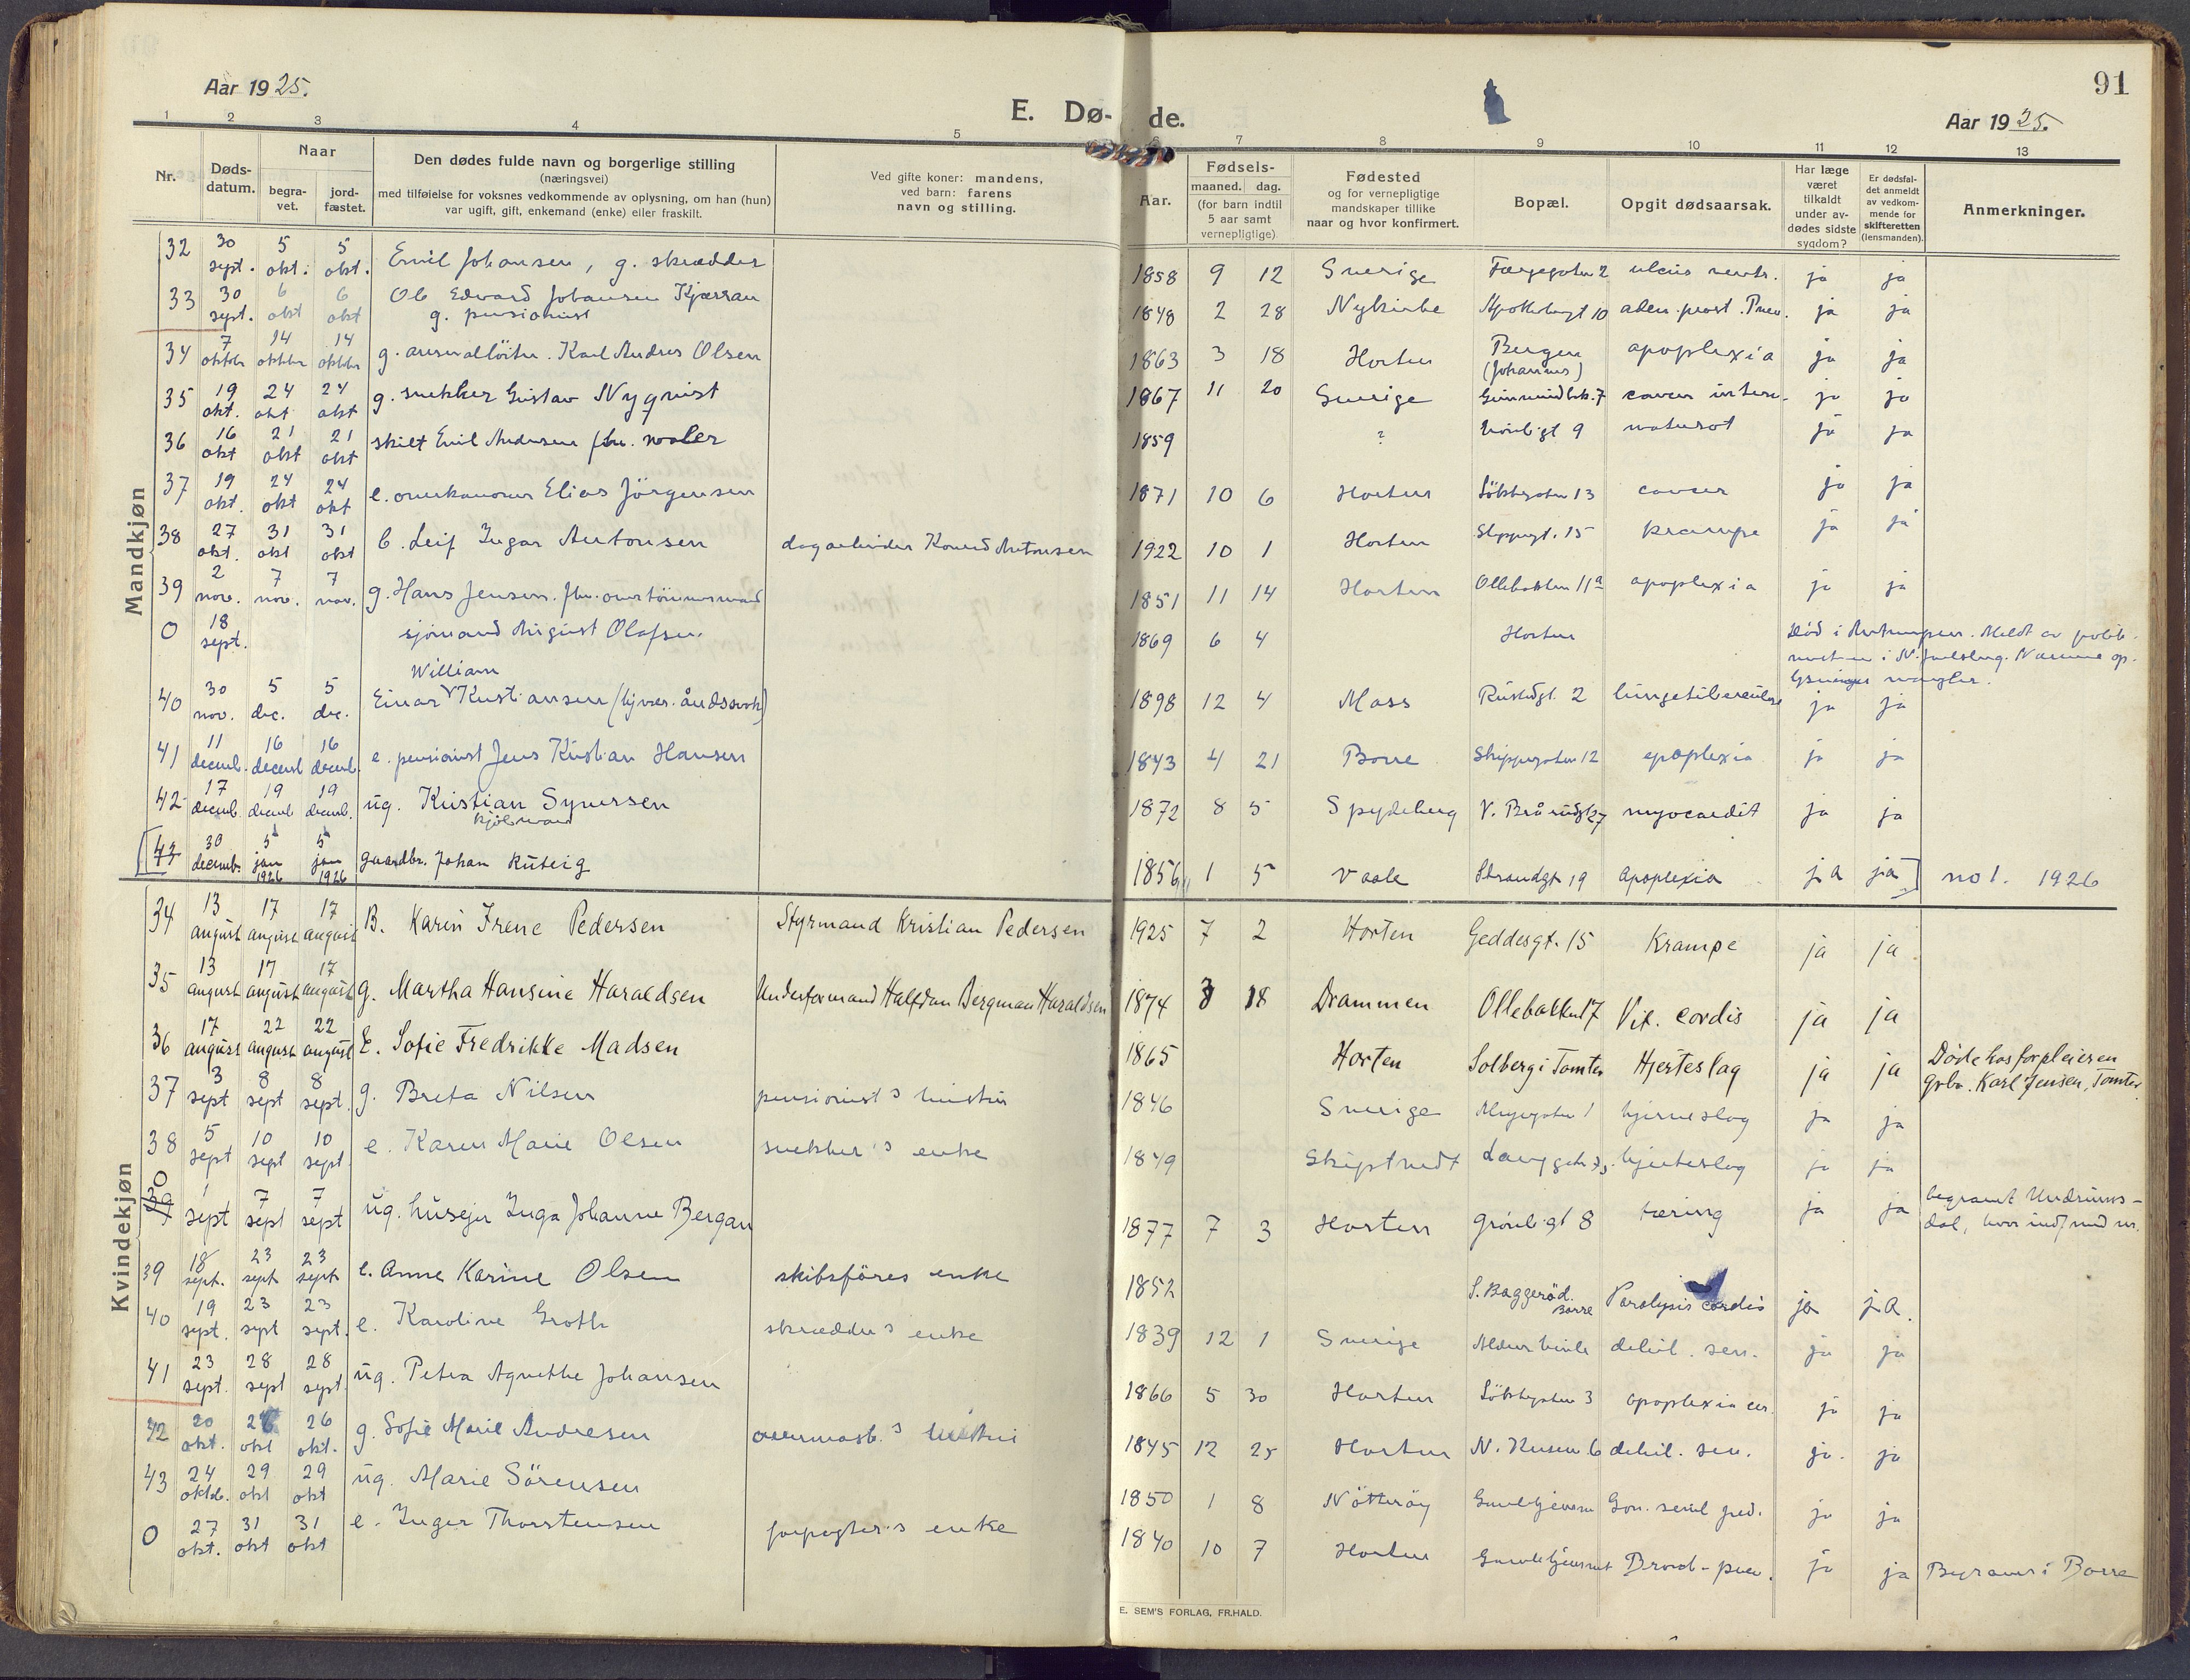 Aar 1925.
E. Dø- de.
Aar 1925.
91
1 2 3 4 5 6 7 8 9 10 11 12 13
Nr.
Døds-
datum.
Naar
begra-
vet.
jord-
fæstet.
Den dødes fulde navn og borgerlige stilling
(næringsvei)
med tilføielse for voksnes vedkommende av oplysning, om han (hun)
var ugift, gift, enkemand (enke) eller fraskilt.
Ved gifte koner: mandens,
ved barn: farens
navn og stilling.
Aar.
Fødsels-
maaned. dag.
(for barn indtil
5 aar samt
vernepligtige)
Fødested
og for vernepligtige
mandskaper tillike
naar og hvor konfirmert.
Bopæl.
Opgit dødsaarsak.
Har læge
været
tilkaldt
under av-
dødes sidste
sygdom?
Er dødsfal-
det anmeldt
av vedkom-
mende for
skifteretten
(lensmanden).
Anmerkninger.
Mandkjøn
32 30 sept. 5 okt. 5 okt. Emil Johansen, g. skrædder 1858 9 12 Sverige Færgegaten 2 ulcus ventr. ja ja
33 30 sept. 6 okt 6 okt Ole Edvard Johansen Kjærran
g. pensionist 1848 2 28 Nykirke 10 aden. prost. Pneu. ja ja
34 7 oktbr 14 oktbr 14 oktbr g. Karl Andres Olsen 1863 3 18 Horten Bergen
(Johannes) apoplexia ja ja
35 19 okt. 24 okt 24 okt g. snekker Gustav Nyqvist 1867 11 20 Sverige 7 cancer ja ja
36 16 okt 21 okt 21 okt skilt Emil Andersen fhv. maler 1859 ? 9 ja ja
37 19 okt. 24 okt 24 okt e. Elias Jörgensen 1871 10 6 Horten 13 cancer ja ja
38 27 okt. 31 okt 31 okt b. Leif Ingar Antonsen dagarbeider Konrad Antonsen 1922 10 1 Horten Slippegt. 15 Krampe ja ja
39 2 nov. 7 nov. 7 nov. g. Hans Jensen. fhv. overtömmermand 1851 11 14 Horten Ollebakken 11a apoplexia ja ja
0 18 sept. sjömand August Olafsen. 1869 6 4 Horten Död i Antwerpen. Meldt av
mangler.
40 30 nov. 5 dec. 5 dec. Einar William Kristiansen 1898 12 4 Moss Rustadgt. 2 lungetuberculose ja ja
41 11 decemb. 16 decemb 16 decemb. e. pensionist Jens Kristian Hansen 1843 4 21 Borre Skippergaten 12 apoplexia ja ja
42 17 decemb. 19 decemb 19 decemb. ug. Kristian Syversen
1872 8 5 Spydeberg V. Brårudgt 27 myocardit ja ja
[43 30 decemb. 5 jan 1926 5 jan 1926 gaardbr. Johan Rueig 1856 1 5 Vaale Strandgt 19 apoplexia ja ja] no 1. 1926
Kvindekjøn
34 13 august 17 august 17 august B. Karin Irene Pedersen Styrmand Kristian Pedersen 1925 7 2 Horten Geddesgt. 15 Krampe ja ja
35 13 august 17 august 17 august g. Martha Hansine Haraldsen Underformand Halfdan Bergman Haraldsen 1874 3 18 Drammen Ollebakken 17 Vit. cordis ja ja
36 17 august 22 august 22 august E. Sofie Fredrikke Madsen 1865 Horten Solberg i Tomter Hjerteslag ja ja Döde hos forpleieren
grbr. Karl Jensen, Tomter
37 3 sept 8 sept 8 sept. g. Breta Nilsen pensionist's hustru 1846 Sverige 1 hjerneslag ja ja
38 5 sept 10 sept 10 sept. e. Karen Marie Olsen snekker's enke 1849 Skiptvedt Langgt. hjerteslag ja ja
39 0 1 sept 7 sept 7 sept ug. huseier Inga Johanne Bergan 1877 7 3 Horten Grönligt 8 tæring ja ja begravet Undrums-
dal,
39 18 sept. 23 sept 23 sept e. Anne Karine Olsen skibsföres enke 1852 S. Baggeröd.
Borre Paralysis cordis ja ja.
40 19 sept. 23 sept 23 sept. e. Karoline Groth skrædder's enke 1839 12 1 Sverige Aldershvile debil. sen. ja ja
41 23 sept. 28 sept 28 sept. ug. Petra Agnethe Johansen 1866 5 30 Horten 3 apoplexia cer. ja ja
42 20 okt. 26 okt 26 okt. g. Sofie Marie Andresen overmask.'s hustru 1845 12 25 Horten 6 debil. sen. ja. ja
43 24 oktb. 29 okt 29 okt ug. Marie Sörensen 1850 1 8 Nötteröy Gamlehjemmet ja ja
0 27 okt. 31 okt 31 okt e. Inger Thorstensen forpagter's enke 1840 10 7 Horten Gamlehjemmet Bronch-pneu. ja ja Begraves i Borre
E. SEM'S FORLAG, FR.HALD.